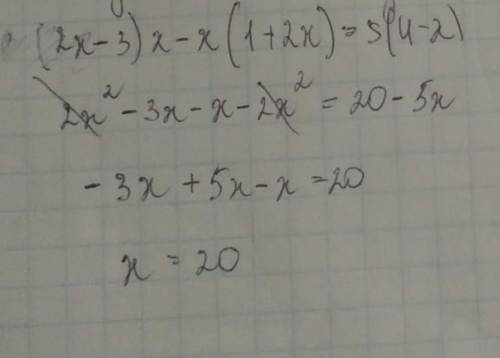 (2x-3)x-x(1+2x)=5(4-x)
2x²-3x-x-2x²=20-5x
-3x+5x-x=20
x=20